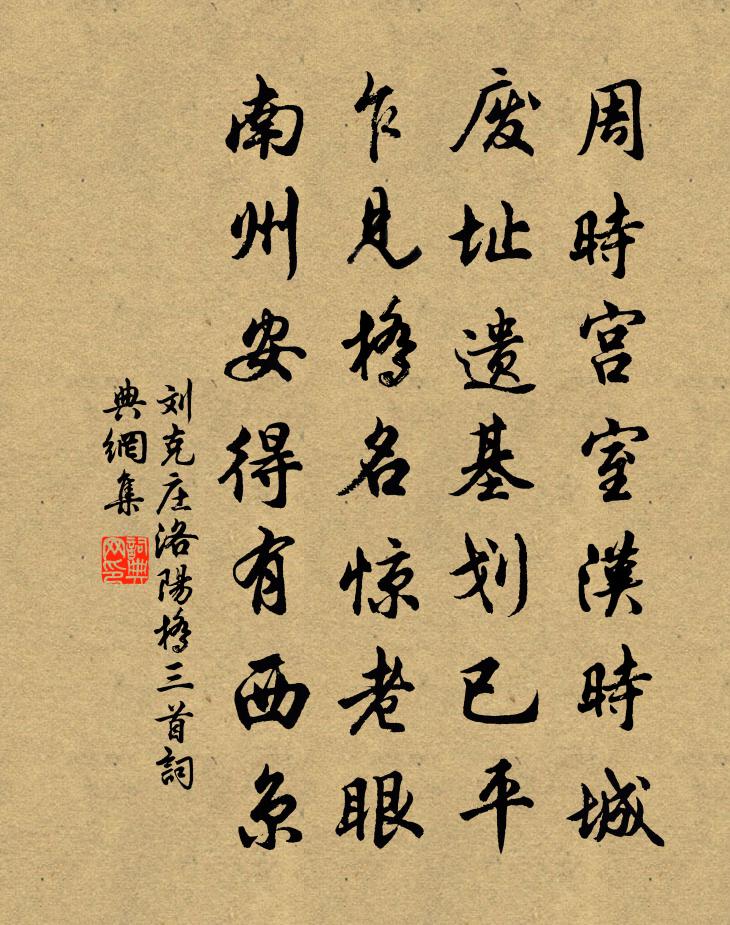 周時宫室漢時城
废址遗基划已平
乍見橋名惊老眼
南州安得有西京
刘克庄洛陽橋三首詞
典網集
詞典网印